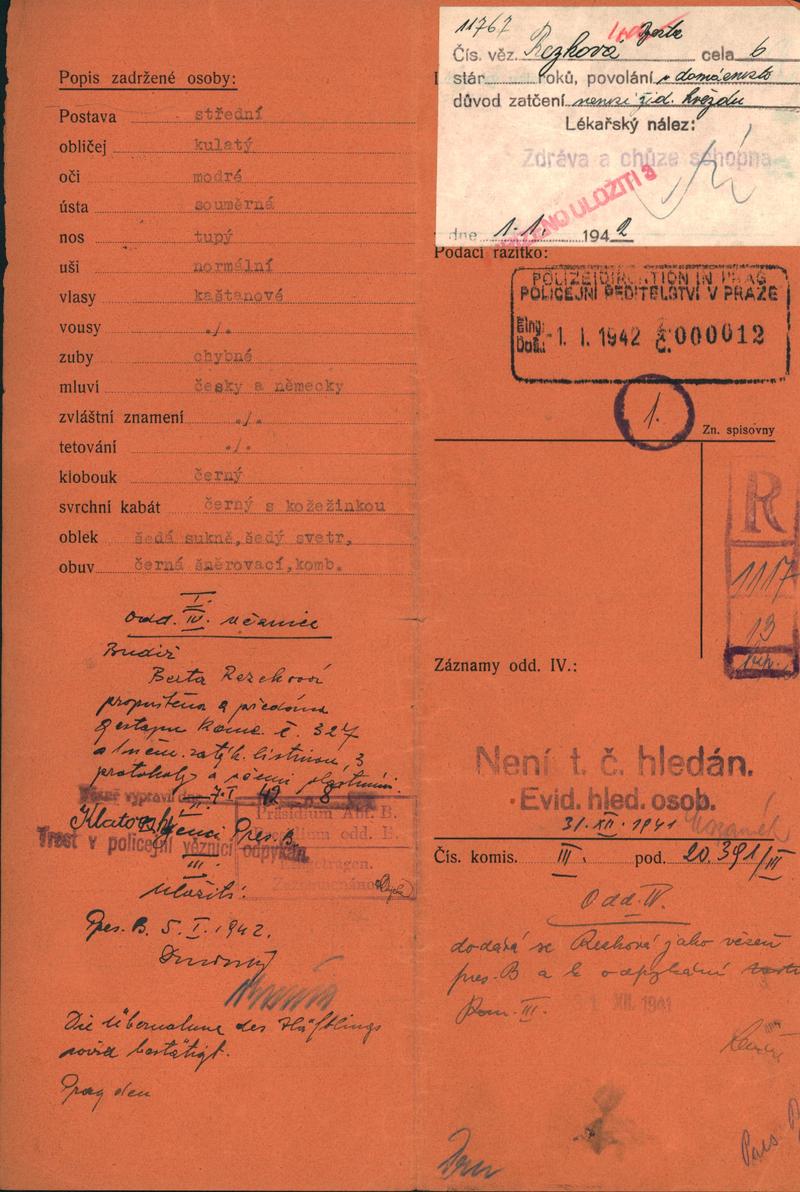 Popis zadržené osoby:
Postava střední
obličej kulatý
oči modré
ústa souměrná
nos tupý
uši normální
vlasy kaštanové
vousy ./.
zuby chybné
mluví česky a německy
zvláštní znamení ./.
tetování ./.
klobouk černý
svrchní kabát černý s kožežinkou
oblek šedá sukně, šedý svetr,
obuv černá šněrovací, komb.
I.
Odd. IV. věznice
Budiž
Berta Rezková
propuštěna a předána
gestapu Kom. č. 327
3
protokoly a
7.I 42 8
Trest v policejní věznici odpykán
Pres. B.
Präsidium Abt. B.
odd. B.
III.
Uložiti:
Pres. B. 5. I. 1942.
Die Übernahme des Häftlings
wird bestätigt.
Prag den
11767 Berta
Čís. věz. Rezková cela 6
stár roků, povolání v domácnosti
důvod zatčení nenosí žid. hvězdu
Lékařský nález:
Zdráva a chůze schopna
ULOŽITI 3
dne 1.1. 1942
Podací razítko:
POLIZEIDIREKTION IN PRAG
POLICEJNÍ ŘEDITELSTVÍ V PRAZE
Eing.
Došlo: -1. I. 1942 č. 000012
1.
Zn. spisovny
R
1117
13
Záznamy odd. IV.:
Není t. č. hledán.
Evid. hled. osob.
31. XII. 1941
Čís. komis. III. pod. 20.391/III
Odd. IV.
dodává se Rezková jako vězeň
pres. B a k odpykání
Kom. III. 31. XII. 1941